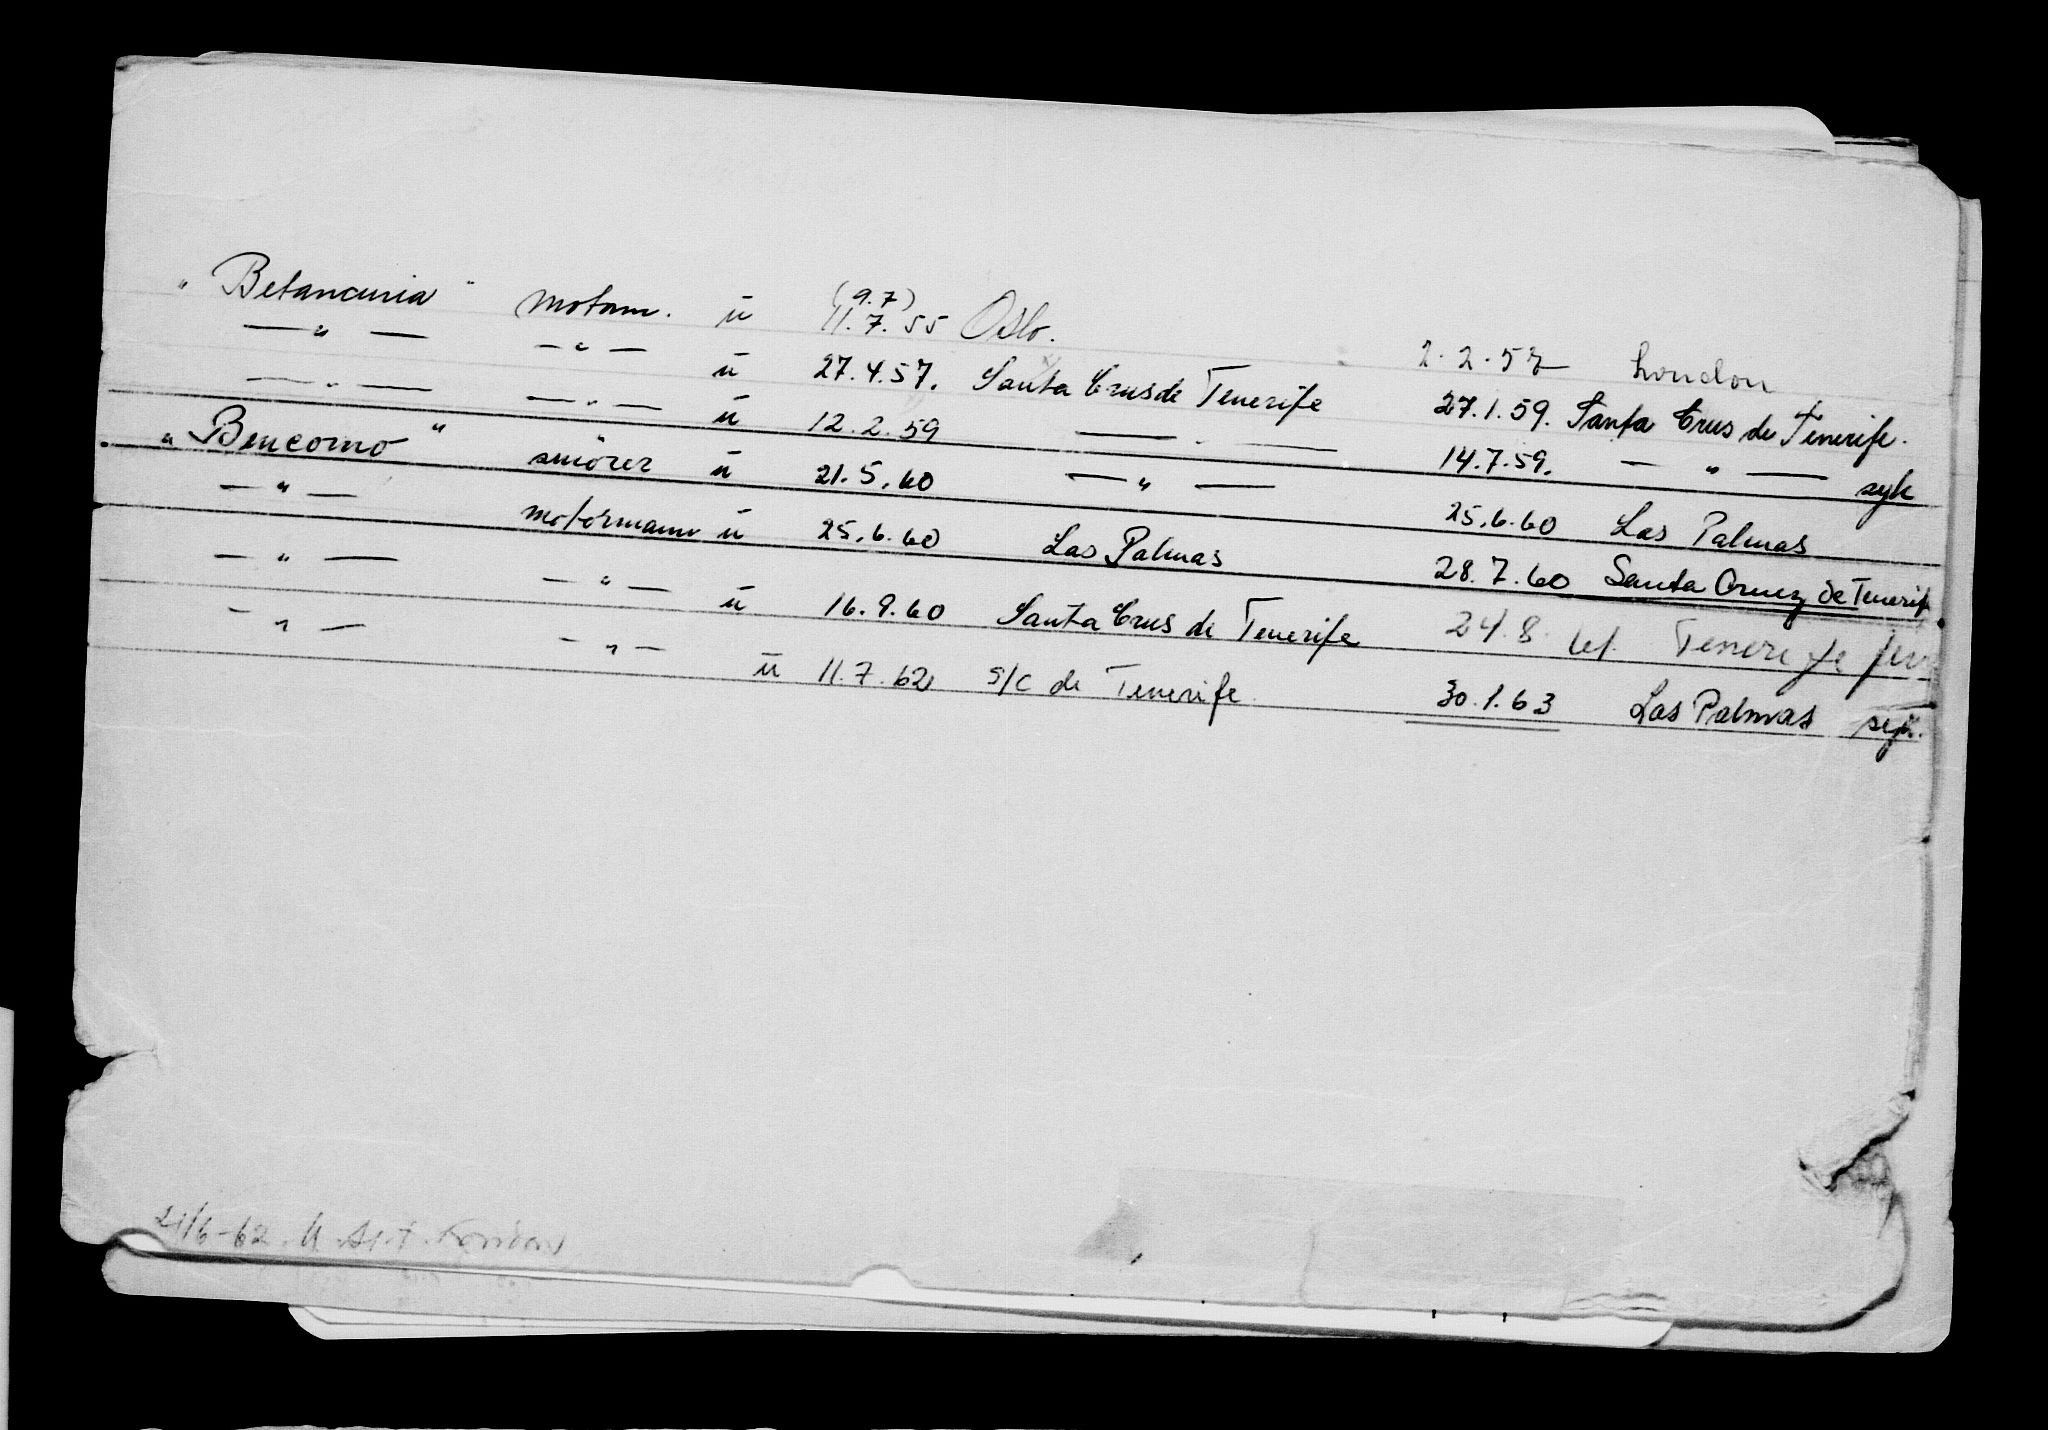 " Betancuria " motorm. ü (9.7) 11.7.55 Oslo. 2.2.57 London
— " — — " — ü 27.4.57. Santa Crus de Tenerife 27.1.59. Santa Crus de Tenerife.
— " — — " — ü 12.2.59 — " — 14.7.59. — " — syk
" Bencomo " smörer ü 21.5.60 — " — 25.6.60 Las Palmas
— " — motormann ü 25.6.60 Las Palmas 28.7.60 Santa Cruz de Tenerife
— " — — " — ü 16.9.60 Santa Crus de Tenerife 24.8. Tenerife
— " — — " — ü 11.7.62 S/C de Tenerife. 30.1.63 Las Palmas syk.
21/6-62.